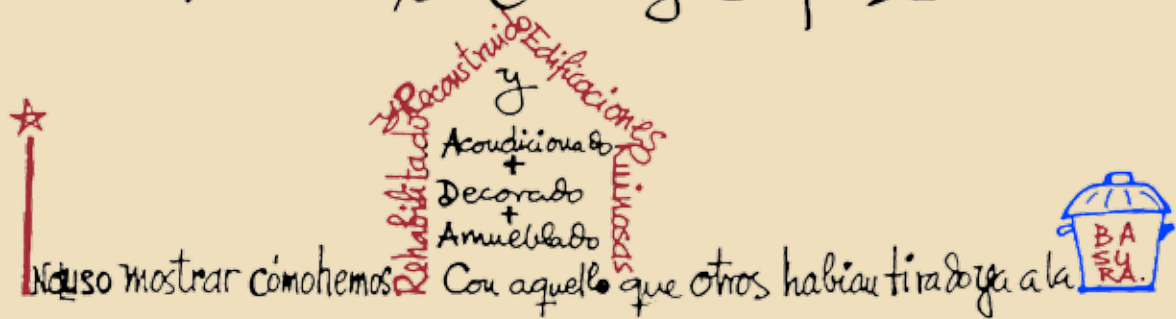 INcluso mostrar cómo hemos
Rehabilitado
y Reconstruido
Edificaciones
Ruinosas
y
Acondicionado
+
Decorado
+
Amueblado
Con aquello que otros habían tirado ya a la
BA
SU
RA.